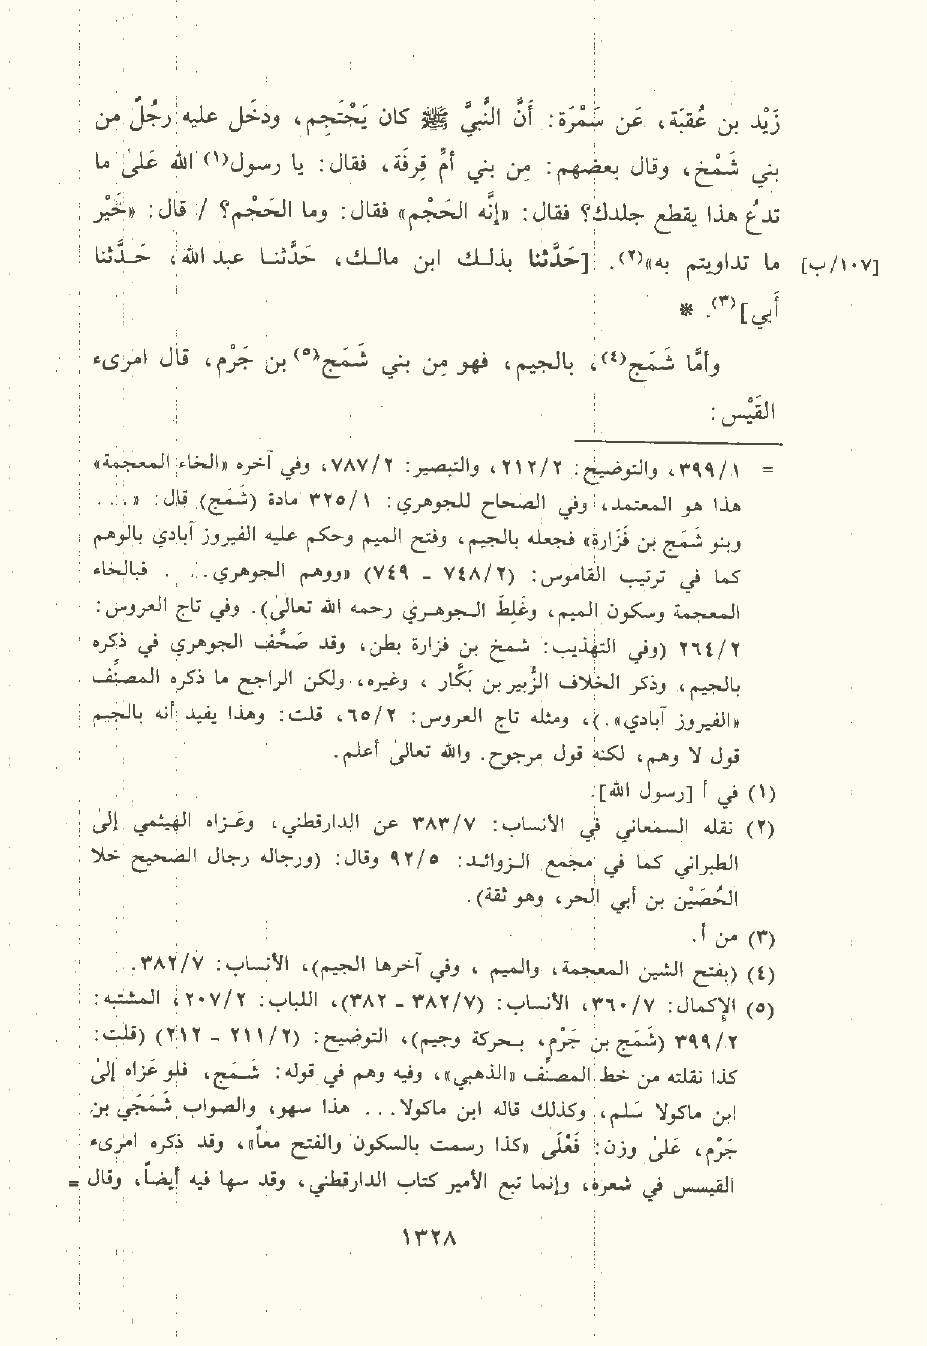 زَيْد بن عُقبَة، عَن سَمْرَة: أَنَّ النَّبيَّ ﷺ كان يَحْتَجِم، ودخَل عليه رجُلٌ من
بني شَمْخ، وقال بعضهم: مِن بني أمِّ قِرفَة، فقال: يا رسول(١) الله عَلىٰ ما
تدعُ هذا يقطع جلدك؟ فقال: «إنَّه الحَجْم» فقال: وما الحَجْم؟ / قال: «خَيْر
[١٠٧/ب] ما تداويتم به»(٢). [حَدَّثنا بذلك ابن مالك، حَدَّثنا عبد الله، حَدَّثنا
أَبي](٣). *
وأمَّا شَمَج(٤)، بالجيم، فهو مِن بني شَمَج(٥) بن جَرْم، قال امرىء
القَيْس:
= ٣٩٩/١، والتوضيح: ٢١٢/٢، والتبصير: ٧٨٧/٢، وفي آخره «الخاء المعجمة»
هذا هو المعتمد، وفي الصحاح للجوهري: ٣٢٥/١ مادة (شَمَج) قال: «...
وبنو شَمَج بن فَزارة» فجعله بالجيم، وفتح الميم وحكم عليه الفيروز آبادي بالوهم
كما في ترتيب القاموس: (٧٤٨/٢ - ٧٤٩) «ووهم الجوهري... فبالخاء
المعجمة وسكون الميم، وغَلِطَ الجوهري رحمه الله تعالىٰ). وفي تاج العروس:
٢٦٤/٢ (وفي التهذيب: شمخ بن فزارة بطن، وقد صَحَّف الجوهري في ذكره
بالجيم، وذكر الخلاف الزُّبير بن بَكَّار، وغيره، ولكن الراجح ما ذكره المصنِّف
«الفيروز آبادي».)، ومثله تاج العروس: ٦٥/٢، قلت: وهذا يفيد أنه بالجيم
قول لا وهم، لكنه قول مرجوح. والله تعالىٰ أعلم.
(١) في أ [رسول الله].
(٢) نقله السمعاني في الأنساب: ٣٨٣/٧ عن الدارقطني، وعَزاه الهيثمي إلىٰ
الطبراني كما في مجمع الزوائد: ٩٢/٥ وقال: (ورجاله رجال الصحيح خلا
الحُصَيْن بن أبي الحر، وهو ثقة).
(٣) من أ.
(٤) (بفتح الشين المعجمة، والميم، وفي آخرها الجيم)، الأنساب: ٣٨٢/٧.
(٥) الإكمال: ٣٦٠/٧، الأنساب: (٣٨٢/٧ - ٣٨٢)، اللباب: ٢٠٧/٢، المشتبه:
٣٩٩/٢ (شَمَج بن جَرْم، بحركة وجيم)، التوضيح: (٢١١/٢ - ٢١٢) (قلت:
كذا نقلته من خط المصنِّف «الذهبي»، وفيه وهم في قوله: شَمَج، فلو عَزاه إلىٰ
ابن ماكولا سَلم، وكذلك قاله ابن ماكولا... هذا سهو، والصواب شَمَجَي بن
جَرْم، عَلىٰ وزن: فَعْلَى «كذا رسمت بالسكون والفتح معاً»، وقد ذكره امرىء
القيس في شعره، وإنما تبع الأمير كتاب الدارقطني، وقد سها فيه أيضاً، وقال =
١٣٢٨